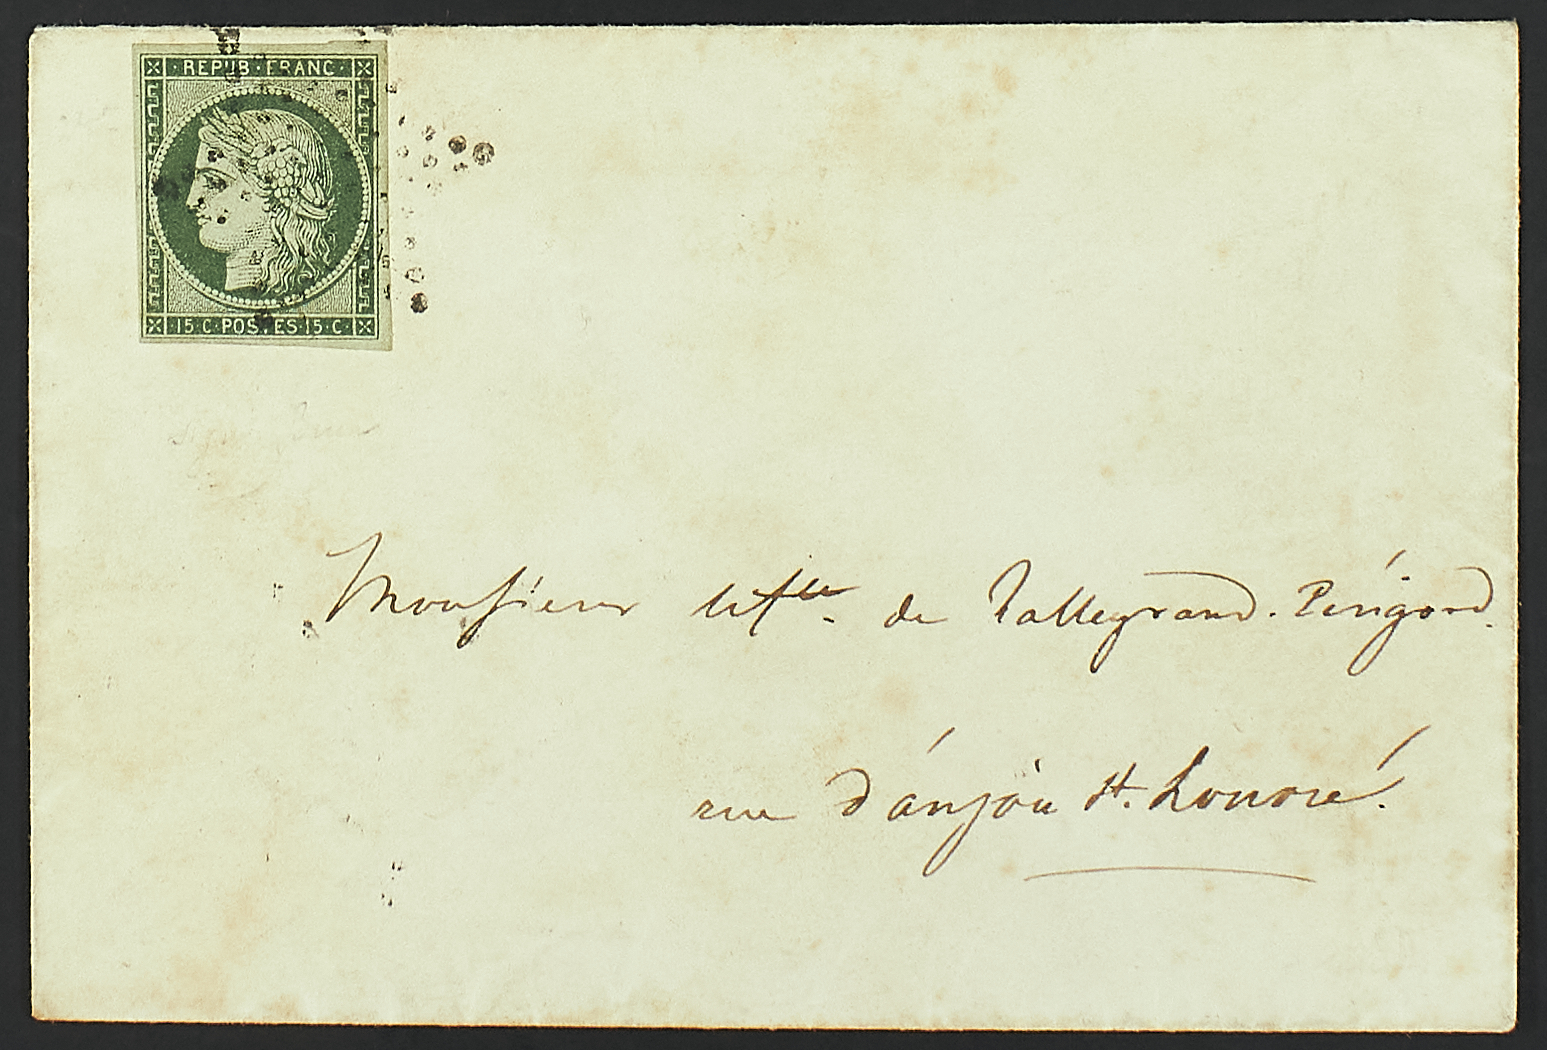 REPUB·FRANC·
15·C·POSTES·15·C·
Monsieur de Talleyrand. Périgord.
rue d'anjou St. honoré.